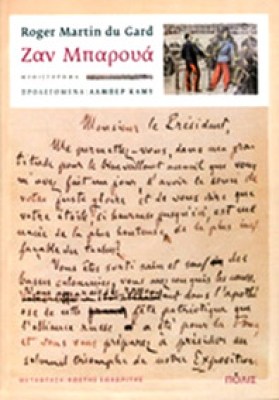 Roger Martin du Gard
Ζαν Μπαρουά
ΜΥΘΙΣΤΟΡΗΜΑ
ΠΡΟΛΕΓΟΜΕΝΑ: ΑΛΜΠΕΡ ΚΑΜΥ
Monsieur le Président,
Me permettez-vous, dans ma gra-
titude pour le bienveillant accueil que vous
m'avez fait un jour, d'avoir le souci de
votre juste gloire et de vous dire que
votre étoile, si heureuse jusqu'ici, est me-
nacée de la plus honteuse, de la plus inef-
façable des taches?
Vous êtes sorti sain et sauf des
basses calomnies, vous avez conquis les cœurs.
dans l'apothé-
ose de cette fête patriotique que
l'alliance russe a été pour la
et vous vous préparez à présider au
solennel triomphe de notre Exposition
ΜΕΤΑΦΡΑΣΗ ΚΩΣΤΗΣ
ΠΟΛΙΣ